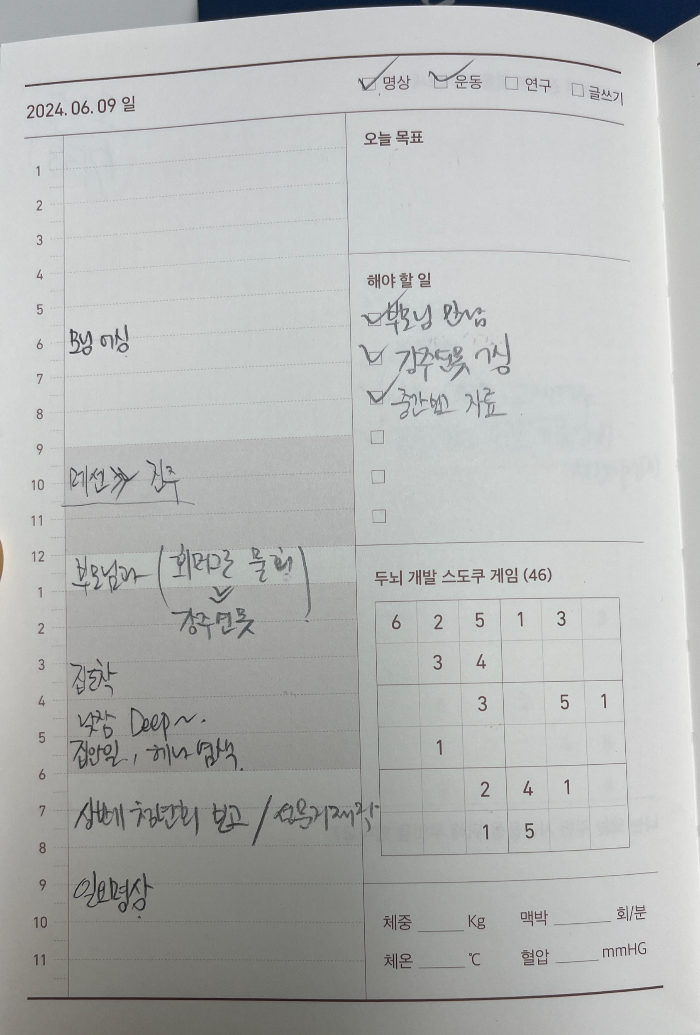 2024. 06. 09 일
명상 운동 연구 글쓰기
1
2
3
4
5
6 모닝 어싱
7
8
9
10 진주
11
12 부모님과 물회
1
2 강주연못
3 집도착
4 낮잠 Deep~.
5 집안일, 헤나 염색.
6
7 보고 /
8
9 일요명상
10
11
오늘 목표
해야 할 일
부모님 만남
강주연못 어싱
중간보고 자료
두뇌 개발 스도쿠 게임 (46)
6 2 5 1 3
3 4
3 5 1
1
2 4 1
1 5
체중 Kg 맥박 회/분
체온 ℃ 혈압 mmHG